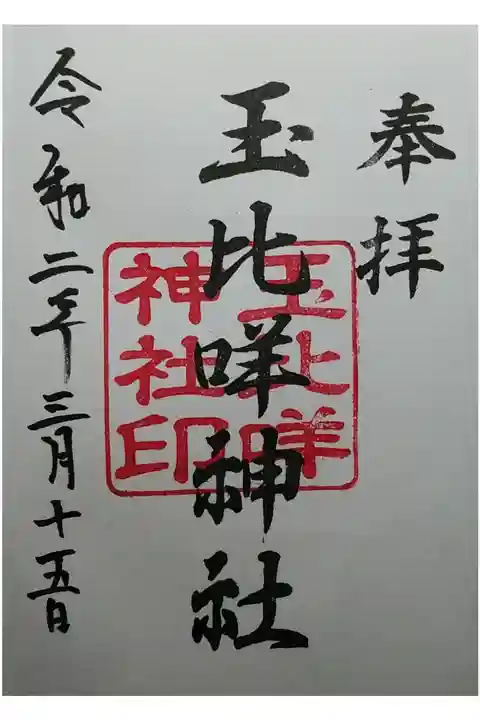 奉拝
玉比咩神社
玉比咩
神社印
令和二年三月十五日